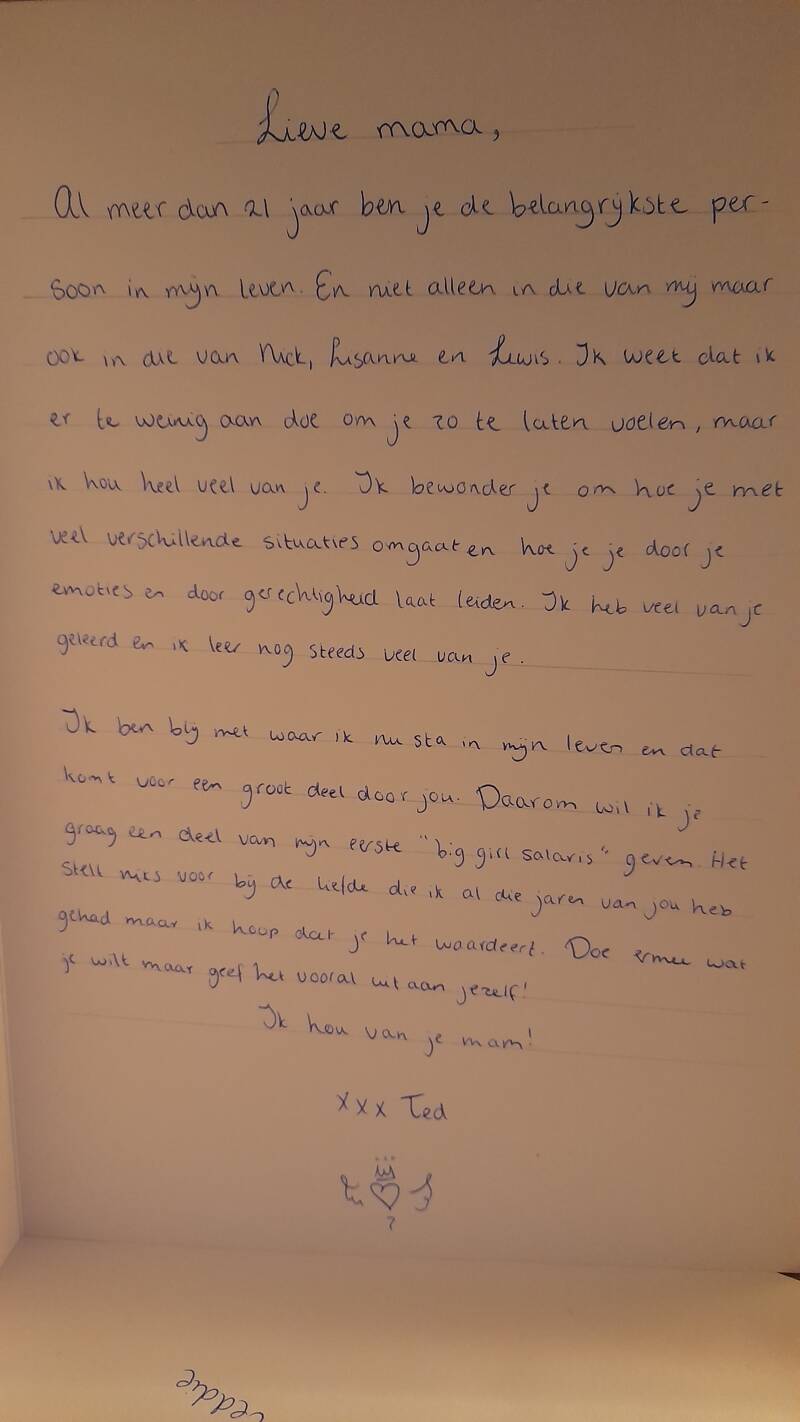 Lieve mama,
Al meer dan 21 jaar ben je de belangrijkste per-
soon in mijn leven. En niet alleen in die van mij maar
ook in die van Nick, Lisanne en Lewis. Ik weet dat ik
er te weinig aan doe om je zo te laten voelen, maar
ik hou heel veel van je. Ik bewonder je om hoe je met
veel verschillende situaties omgaat en hoe je je door je
emoties en door gerechtigheid laat leiden. Ik heb veel van je
geleerd en ik leer nog steeds veel van je.
Ik ben blij met waar ik nu sta in mijn leven en dat
komt voor een groot deel door jou. Daarom wil ik je
graag een deel van mijn eerste "big girl salaris" geven. Het
stelt niks voor bij de liefde die ik al die jaren van jou heb
gehad maar ik hoop dat je het waardeert. Doe ermee wat
je wilt maar geef het vooral uit aan jezelf!
Ik hou van je mam!
xxx Ted
?
eddie